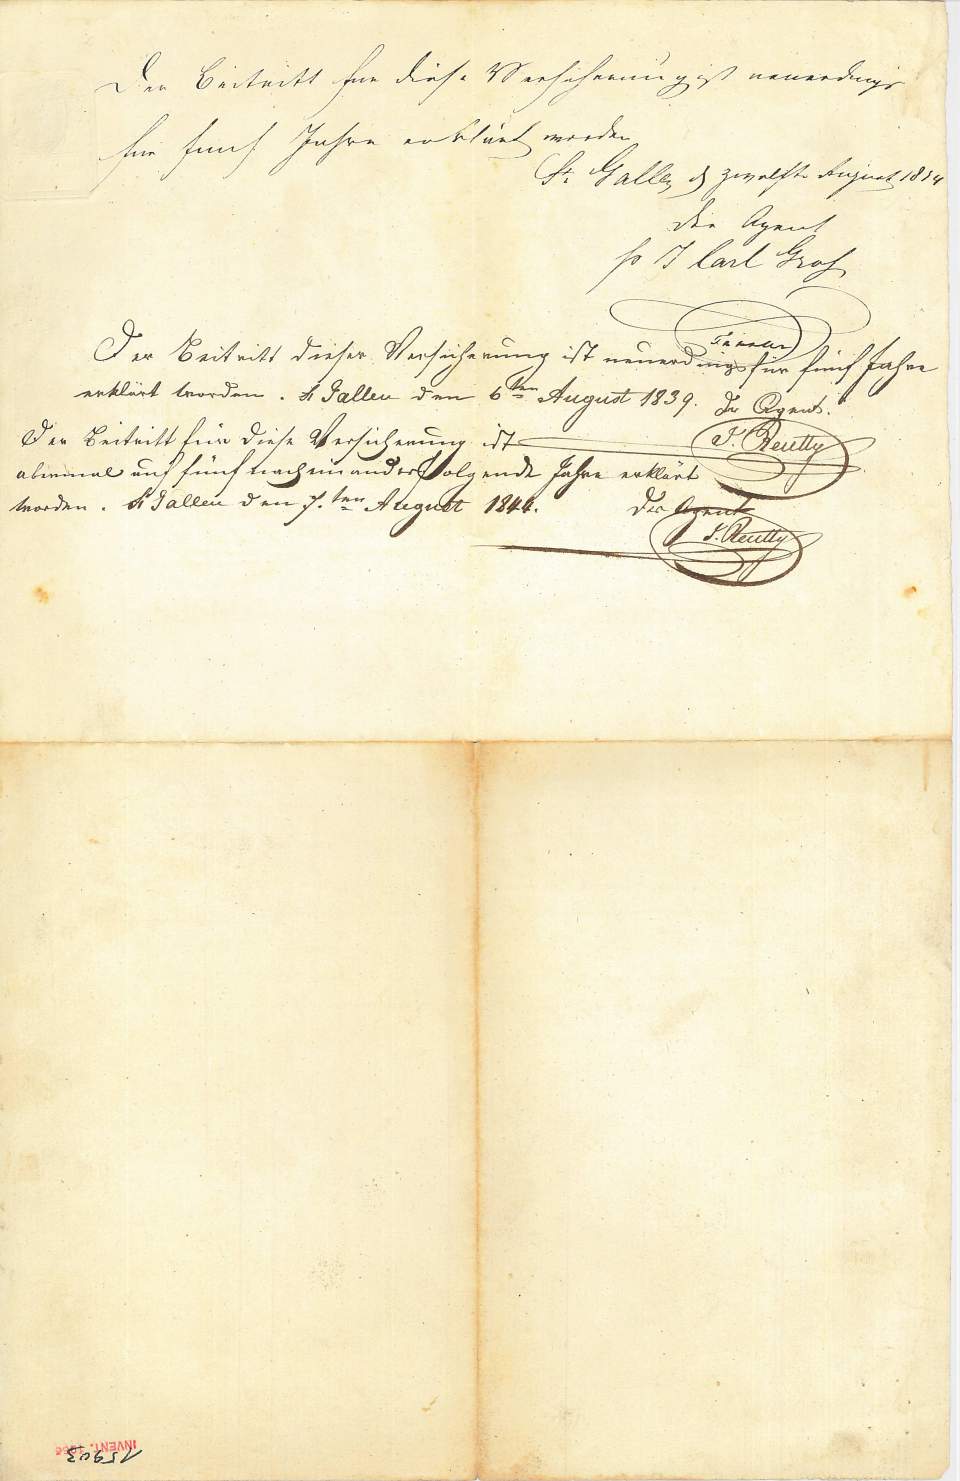 Der Beitritt für diese Versicherung ist neuerdings
für fünf Jahre erklärt worden
St. Gallen d zwölfte August 1834
der Agent
pr J Carl Grob
Tanner
Der Beitritt dieser Versicherung ist neuerdings für fünf Jahre
erklärt worden. St Gallen den 6ten August 1839. Der Agent.
J. Reutty
Der Beitritt für diese Versicherung ist
abermal auf fünf nacheinanderfolgende Jahre erklärt
worden. St Gallen den 7.ten August 1844. Der Agent
J. Reutty
INVENT. 1966
15903